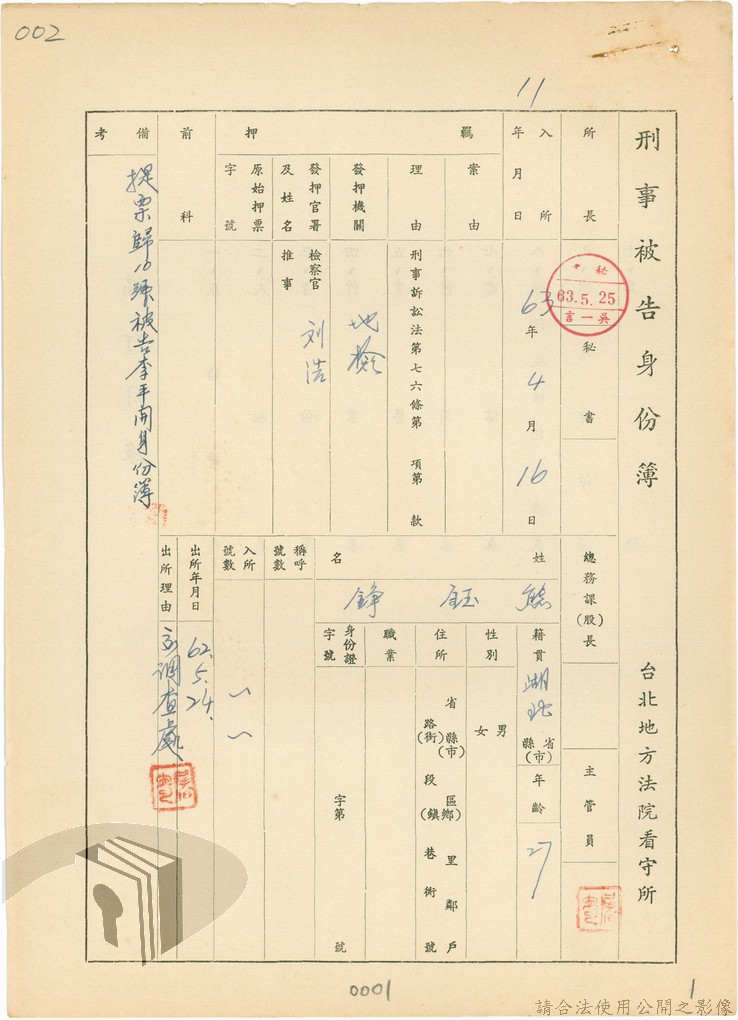 002
11
刑事被告身份簿
台北地方法院看守所
所長
秘書
63.5.25
吳一言
總務課(股)長
主管員
入所年月日
63年4月16日
羈押
案由
理由
刑事訴訟法第七六條第 項第 款
發押機關
地檢
發押官署及姓名
檢察官
推事
刘浩
原始押票字號
前科
備考
提票歸10號被告李平開身份簿
姓名
熊鈺錚
籍貫
湖北
省縣(市)
年齡
27
性別
男女
住所
省縣(市)區鄉(鎮)里鄰戶
路(街)段巷衖號
職業
身份證字號
字第 號
稱呼號數
入所號數
出所年月日
62.5.24.
出所理由
調查處
0001
1
請合法使用公開之影像